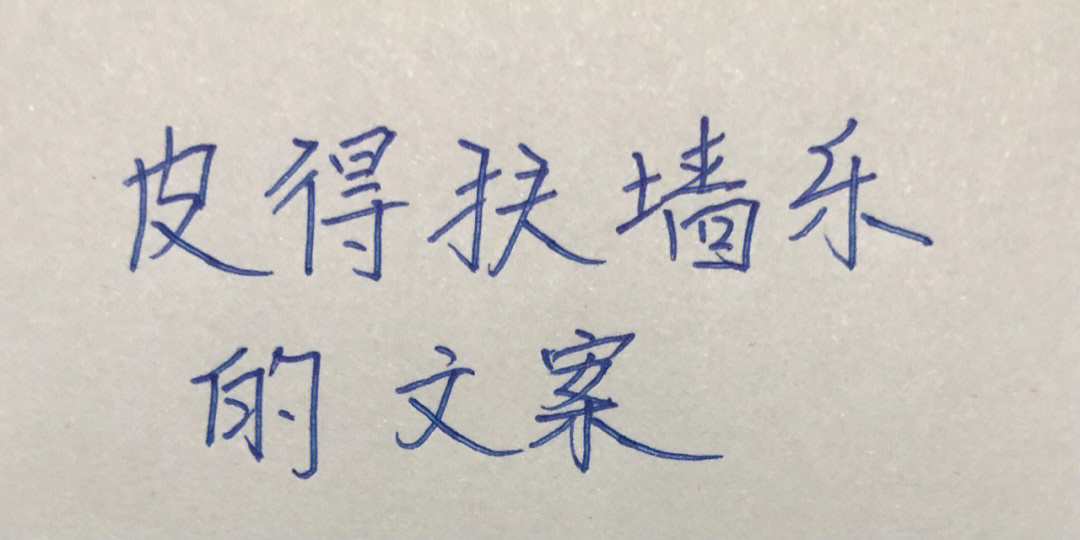 皮得扶墙乐
的文案